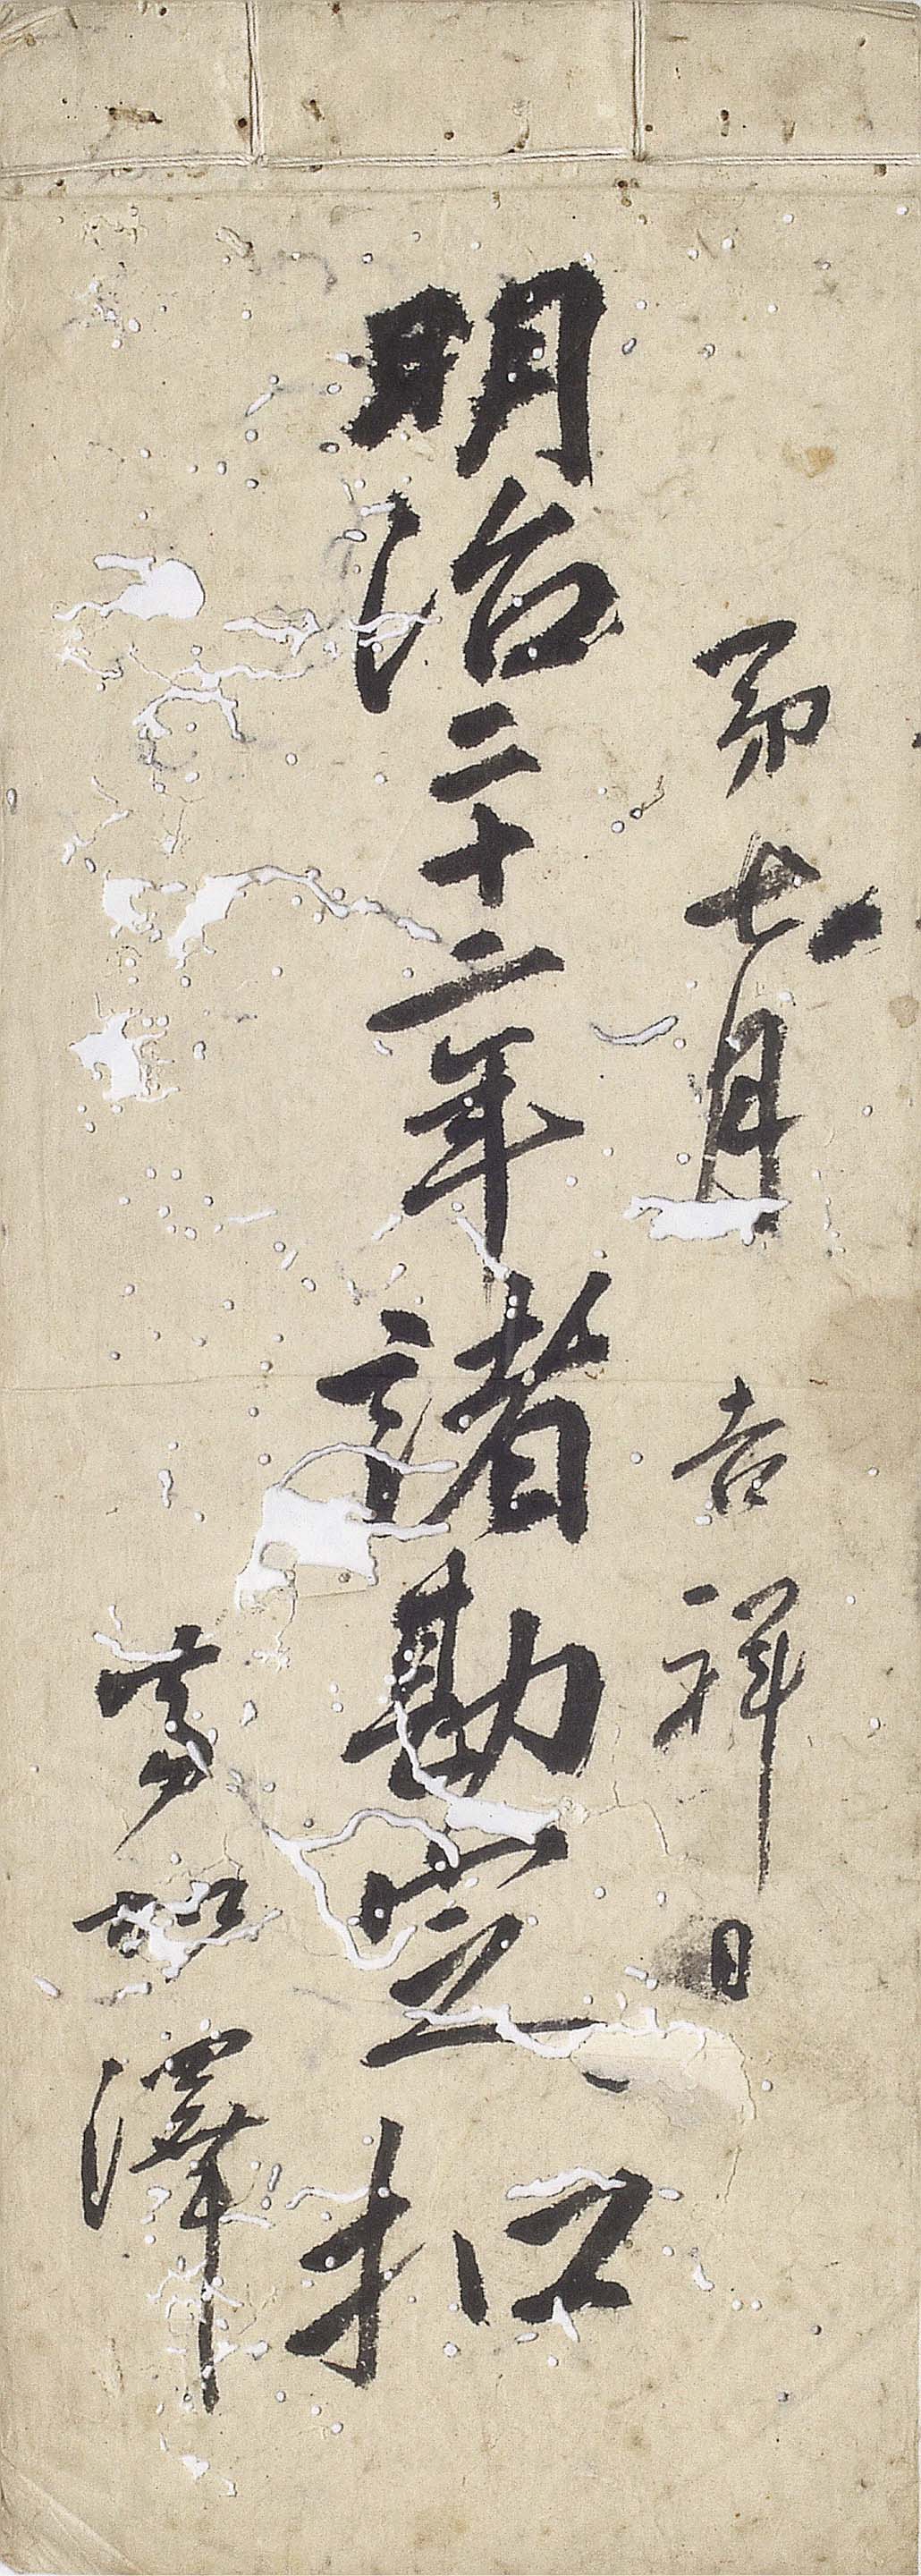 第七月 吉祥日
明治二十二年諸勘定扣
澤